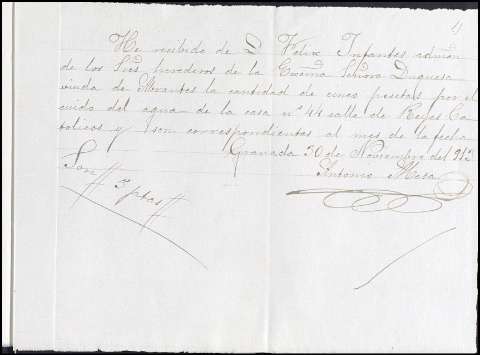 4)
He recibido de D. Felix Infantes admon
de los Sres herederos de la Excma Señora Duquesa
viuda de Abrantes la cantidad de cinco pesetas por el
cuido del agua de la casa nº 44 calle de Reyes Ca
tolicos y son correspondientes al mes de la fecha
Granada 30 de Noviembre del 912
Antonio Mesa
Son # 5 ptas #